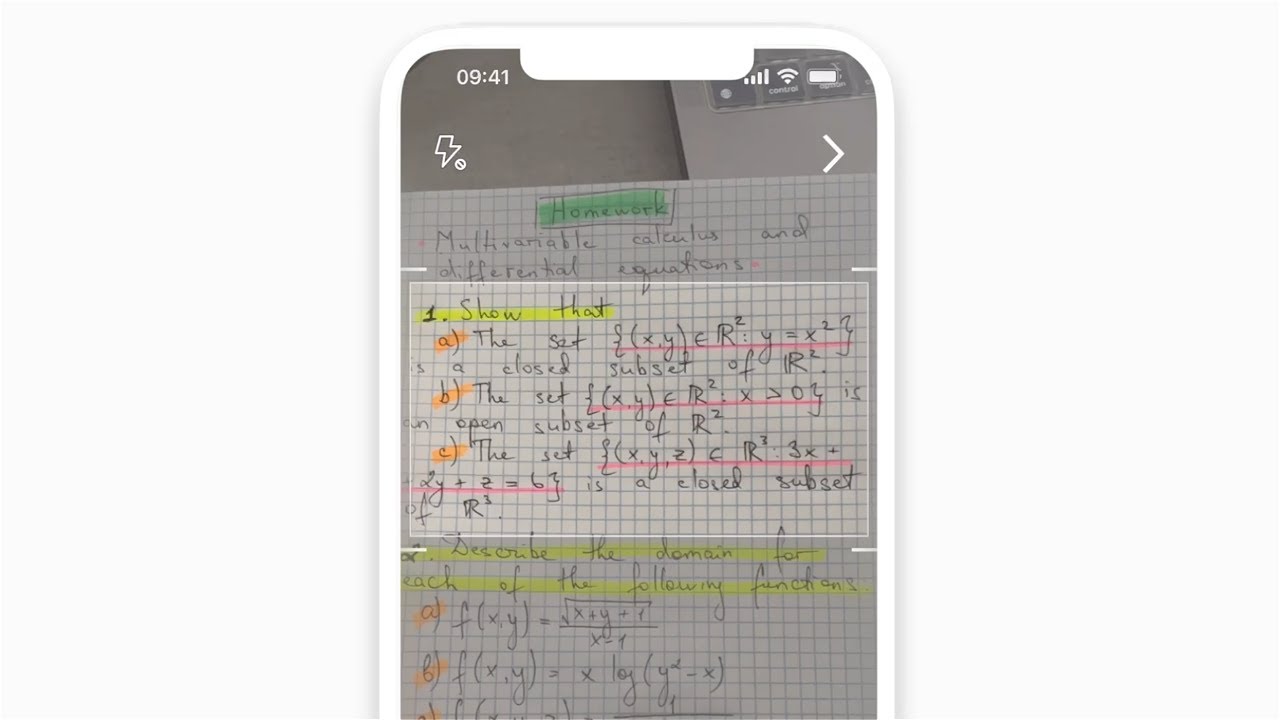 09:41
control
option
Homework
Multivariable calculus and
differential equations.
1. Show that
a) The set {(x,y) ∈ ℝ²: y = x²}
is a closed subset of ℝ².
b) The set {(x,y) ∈ ℝ²: x > 0} is
an open subset of ℝ².
c) The set {(x,y,z) ∈ ℝ³: 3x +
+ 2y + z = 6} is a closed subset
of ℝ³.
2. Describe the domain for
each of the following functions.
a) f(x,y) = √(x+y+1) / (x-1)
b) f(x,y) = x log(y²-x)